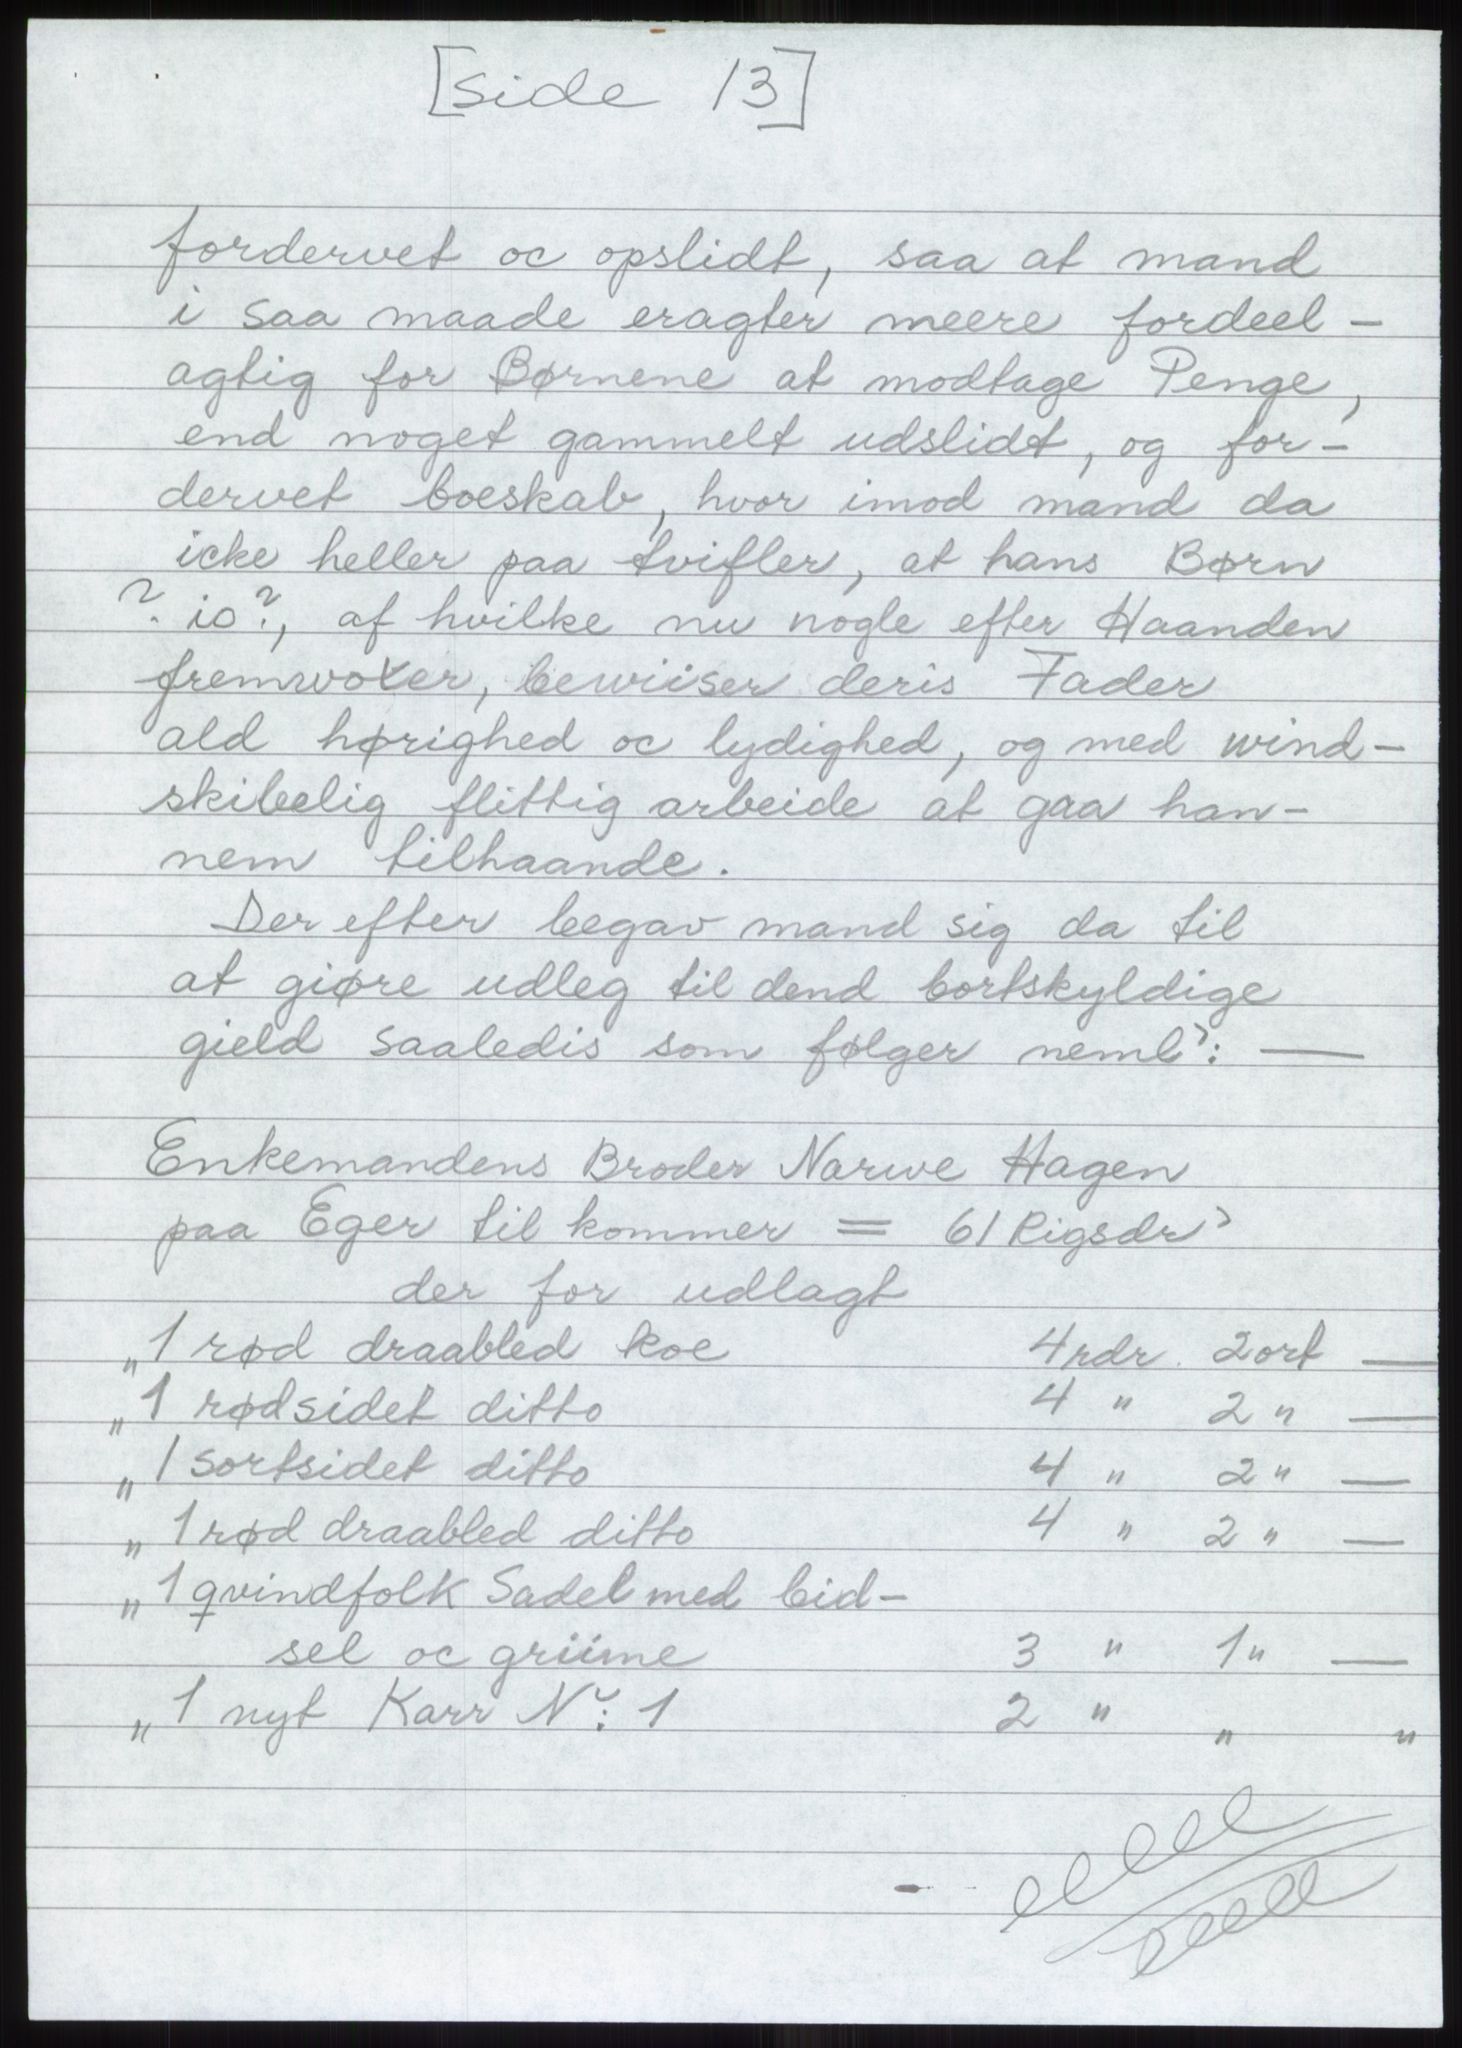 [side 13]
fordervet oc opslidt, saa at mand
i saa maade eragter meere fordeel-
agtig for Børnene at modtage Penge,
end noget gammelt udslidt, og for-
dervet boeskab, hvor imod mand da
icke heller paa tvifler, at hans Børn
? io?, af hvilke nu nogle efter Haanden
fremvoxer, bewiiser deris Fader
ald hørighed oc lydighed, og med wind-
skibelig flittig arbeide at gaa han-
nem tilhaande.
Der efter begav mand sig da til
at giøre udleg til dend bortskyldige
gield saaledis som følger neml: —
Enkemandens Broder Narwe Hagen
paa Eger til kommer = 61 Rigsdr
der for udlagt
" 1 rød draabled koe 4 rdr. 2 ort —
" 1 rødsidet ditto 4 " 2 " —
" 1 sortsidet ditto 4 " 2 " —
" 1 rød draabled ditto 4 " 2 " —
" 1 qvindfolk Sadel med bid-
sel oc griime 3 " 1 " —
" 1 nyt Karr N: 1 2 " " "